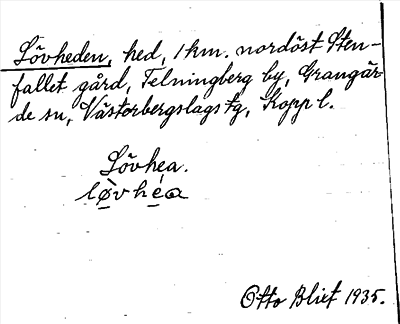 Lövheden, hed, 1 km. nordöst Sten-
fallet gård, Telningberg by, Grangär-
de sn, Västerbergslags tg, Kopp l.
Lövhea.
løvhéa
Otto Blixt 1935.